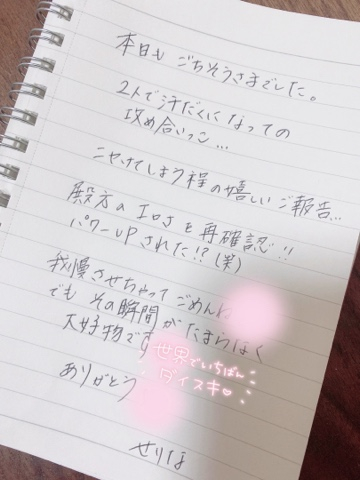 本日も ごちそうさまでした。
2人で汗だくに なっての
攻め合いっこ…
ニヤけてしまう程の嬉しいご報告…
殿方のエロさを再確認!!
パワーUPされた!?(笑)
我慢させちゃって ごめんね
でも その瞬間が たまらなく
大好物です
世界でいちばん
ダイスキ♡
ありがとう
せりな